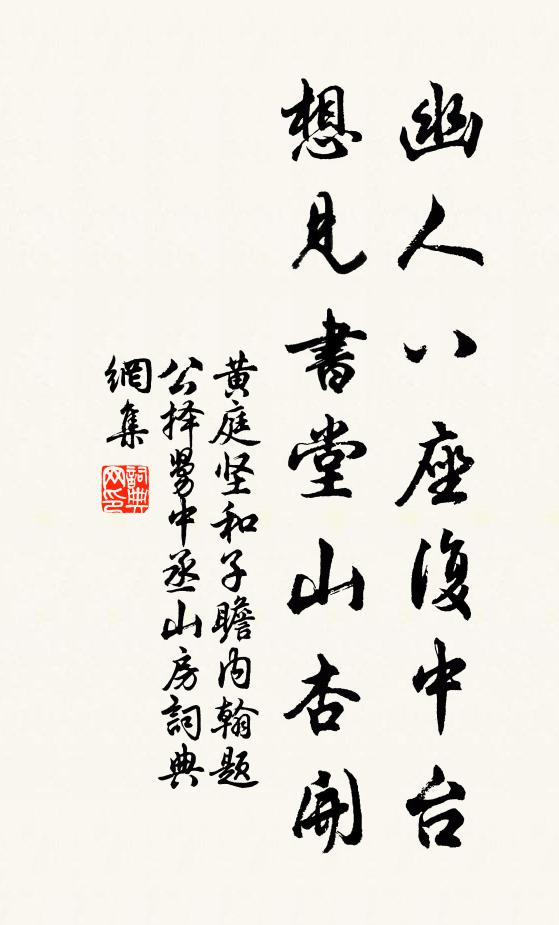 幽人八座復中台
想見書堂山杏開
黄庭坚和子瞻内翰题
公择舅中丞山房詞典
網集
詞典网印